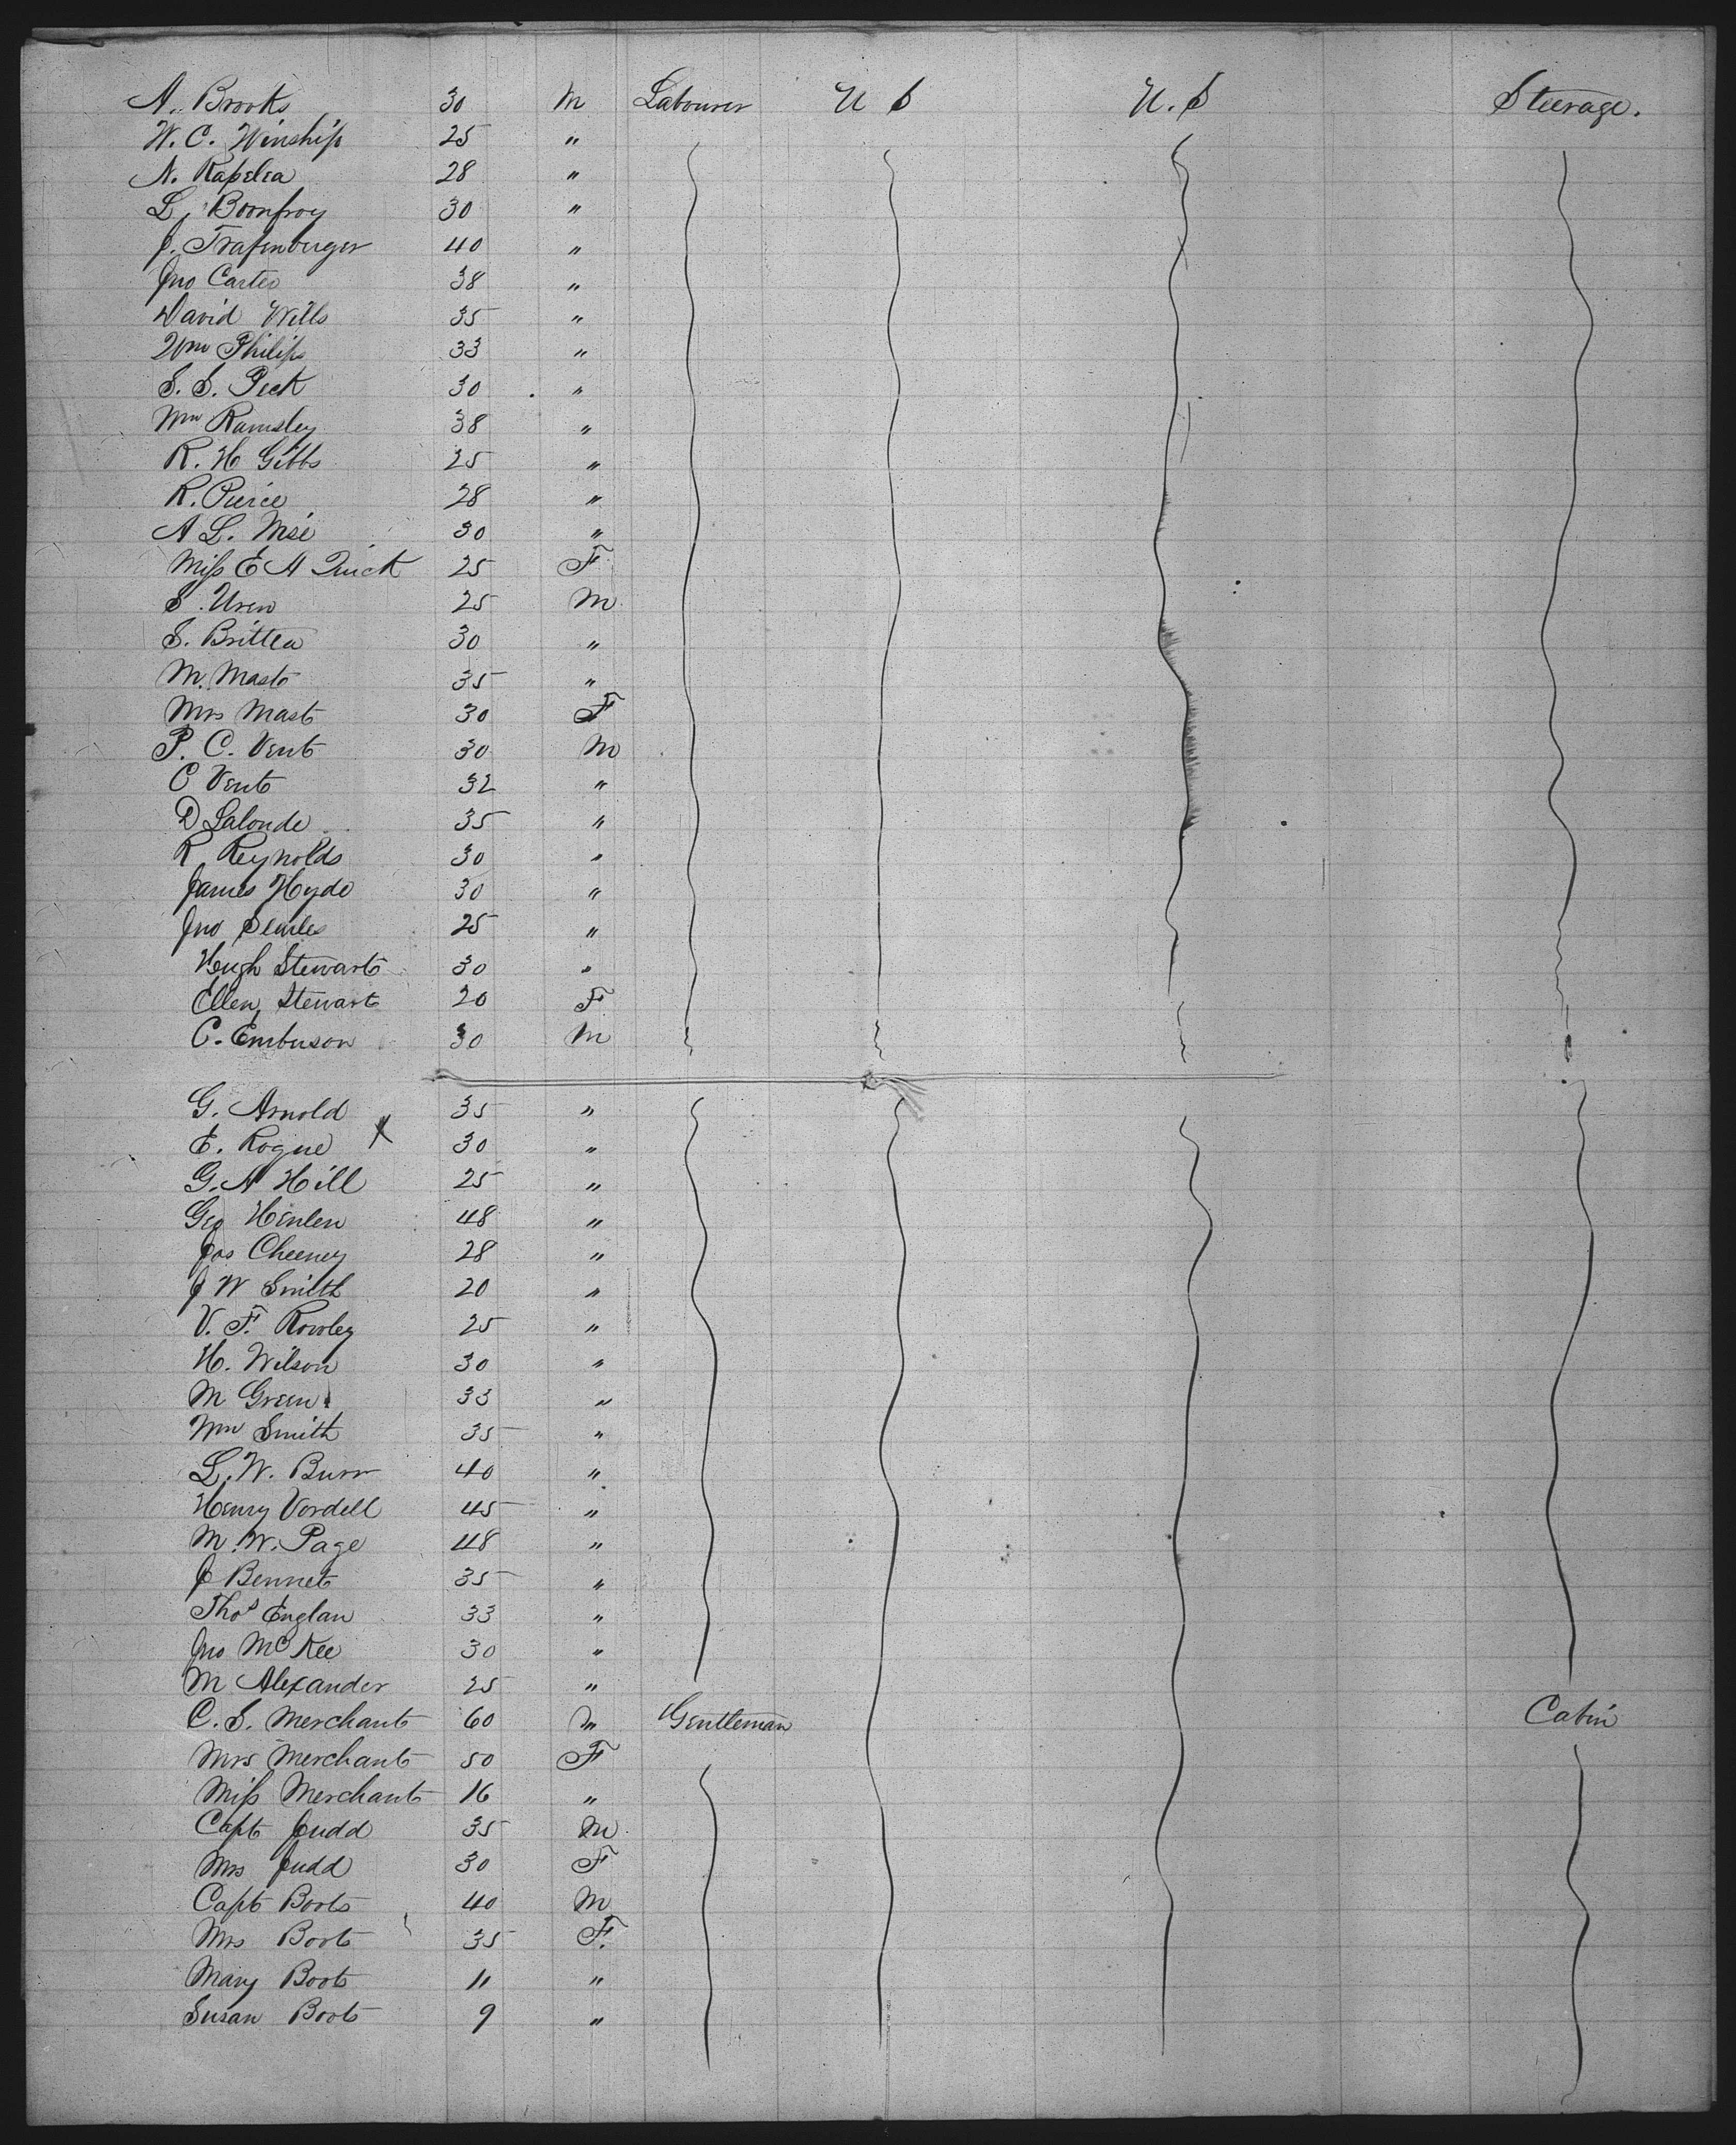 A. Brooks 30 M Labourer U S U. S Steerage.
W. C. Winship 25 "
N. Rapelea 28 "
L. Bonfroy 30 "
J. Trafenberger 40 "
Jno Carter 38 "
David Wills 35 "
Wm Philips 33 "
S. S. Peck 30 "
Wm Ramsley 38 "
R. H Gibbs 25 "
R. Pierce 28 "
A L. 30 "
Miss E A Quick 25 F
S. Uren 25 M
S. Britten 30 "
M. Mast 35 "
Mrs Mast 30 F
P. C. Vent 30 M
C Vent 32 "
D Lalonde 35 "
R Reynolds 30 "
James Hyde 30 "
Jno Searles 25 "
Hugh Stewart 30 "
Ellen Stewart 20 F
C. Emberson 30 M
G. Arnold 35 "
E. Rogue X 30 "
G. A Hill 25 "
Geo Henlen 48 "
Jas Cheeney 28 "
J W Smith 20 "
V. F. Rowley 25 "
H. Wilson 30 "
M Green 33 "
Wm Smith 35 "
L. W. Burr 40 "
Henry Vordell 45 "
M. W. Page 48 "
J Bennet 35 "
Thos Englan 33 "
Jno McKee 30 "
M Alexander 25 "
C. S. Merchant 60 M Gentleman Cabin
Mrs Merchant 50 F
Miss Merchant 16 "
Capt Judd 35 M
Mrs Judd 30 F
Capt Boots 40 M
Mrs Boots 35 F.
Mary Boots 11 "
Susan Boots 9 "